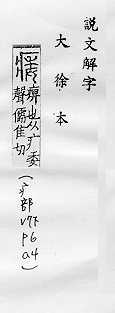 說文解字
大徐本
痿痹也从疒委
聲儒隹切
(疒部V7下P6a4)